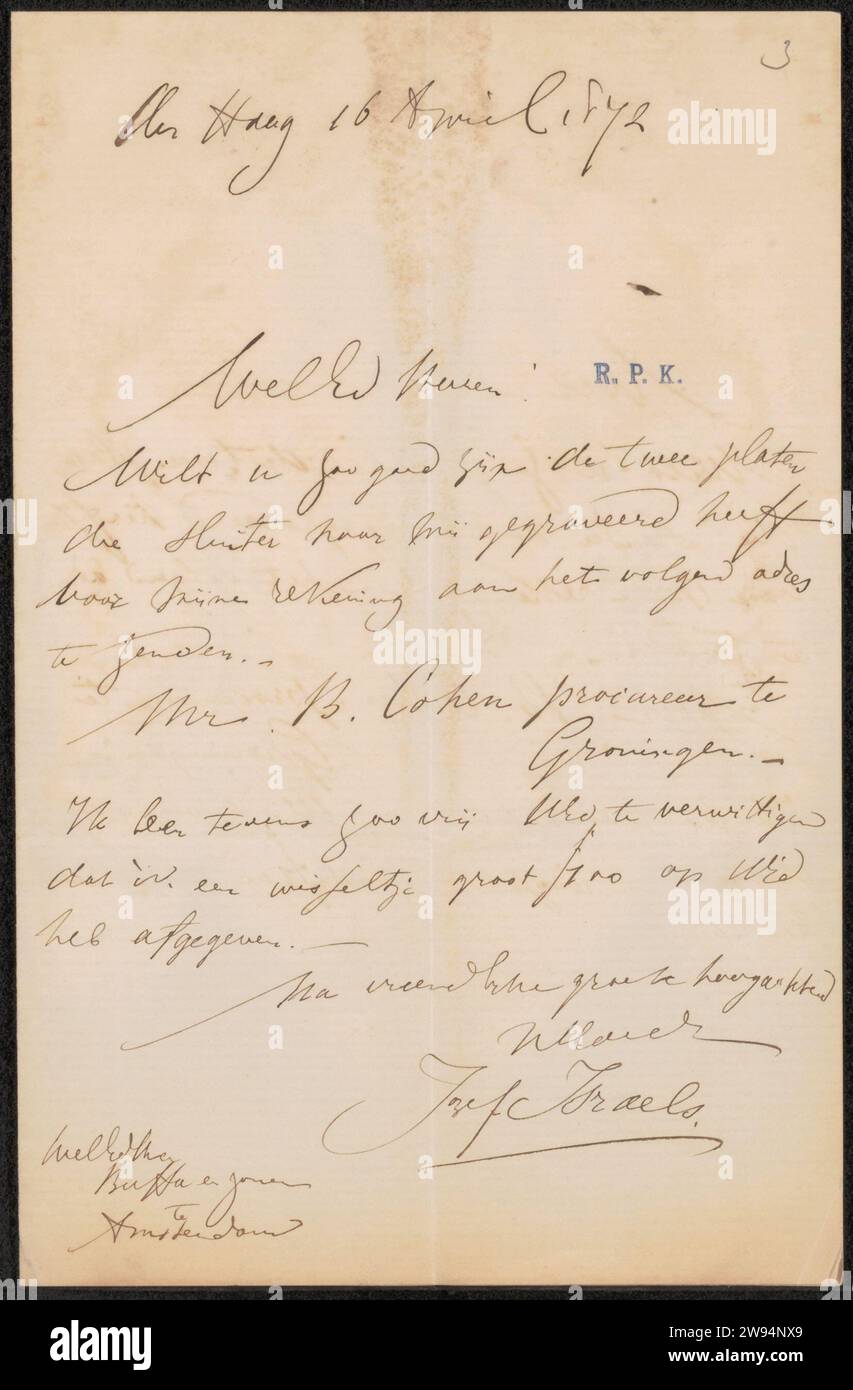 3
den Haag 16 April 1872
WelEd Heeren!
R. P. K.
Wilt u zoo goed zijn de twee platen
die Sluiter naar mij gegraveerd heeft
voor mijne rekening aan het volgend adres
te zenden.-
Mr. B. Cohen procureur te
Groningen.-
Ik ben tevens zoo vrij UEd te verwittigen
dat ik een wisseltje groot f100 op UEd
heb afgegeven.-
Na vriendelyke groete hoogachtend
Jozef Israels.
WelEdHee
Buffa en zonen
te
Amsterdam
alamy
Image ID: 2W94NX9
www.alamy.com